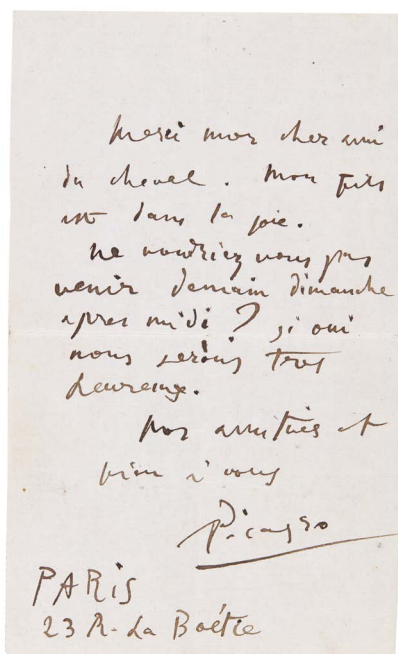 Merci mon cher ami
du cheval. Mon fils
est dans la joie.
ne voudriez vous pas
venir demain dimanche
apres midi ? si oui
nous serions tres
heureux.
nos amitiés et
bien à vous
Picasso
PARIS
23 R. La Boétie